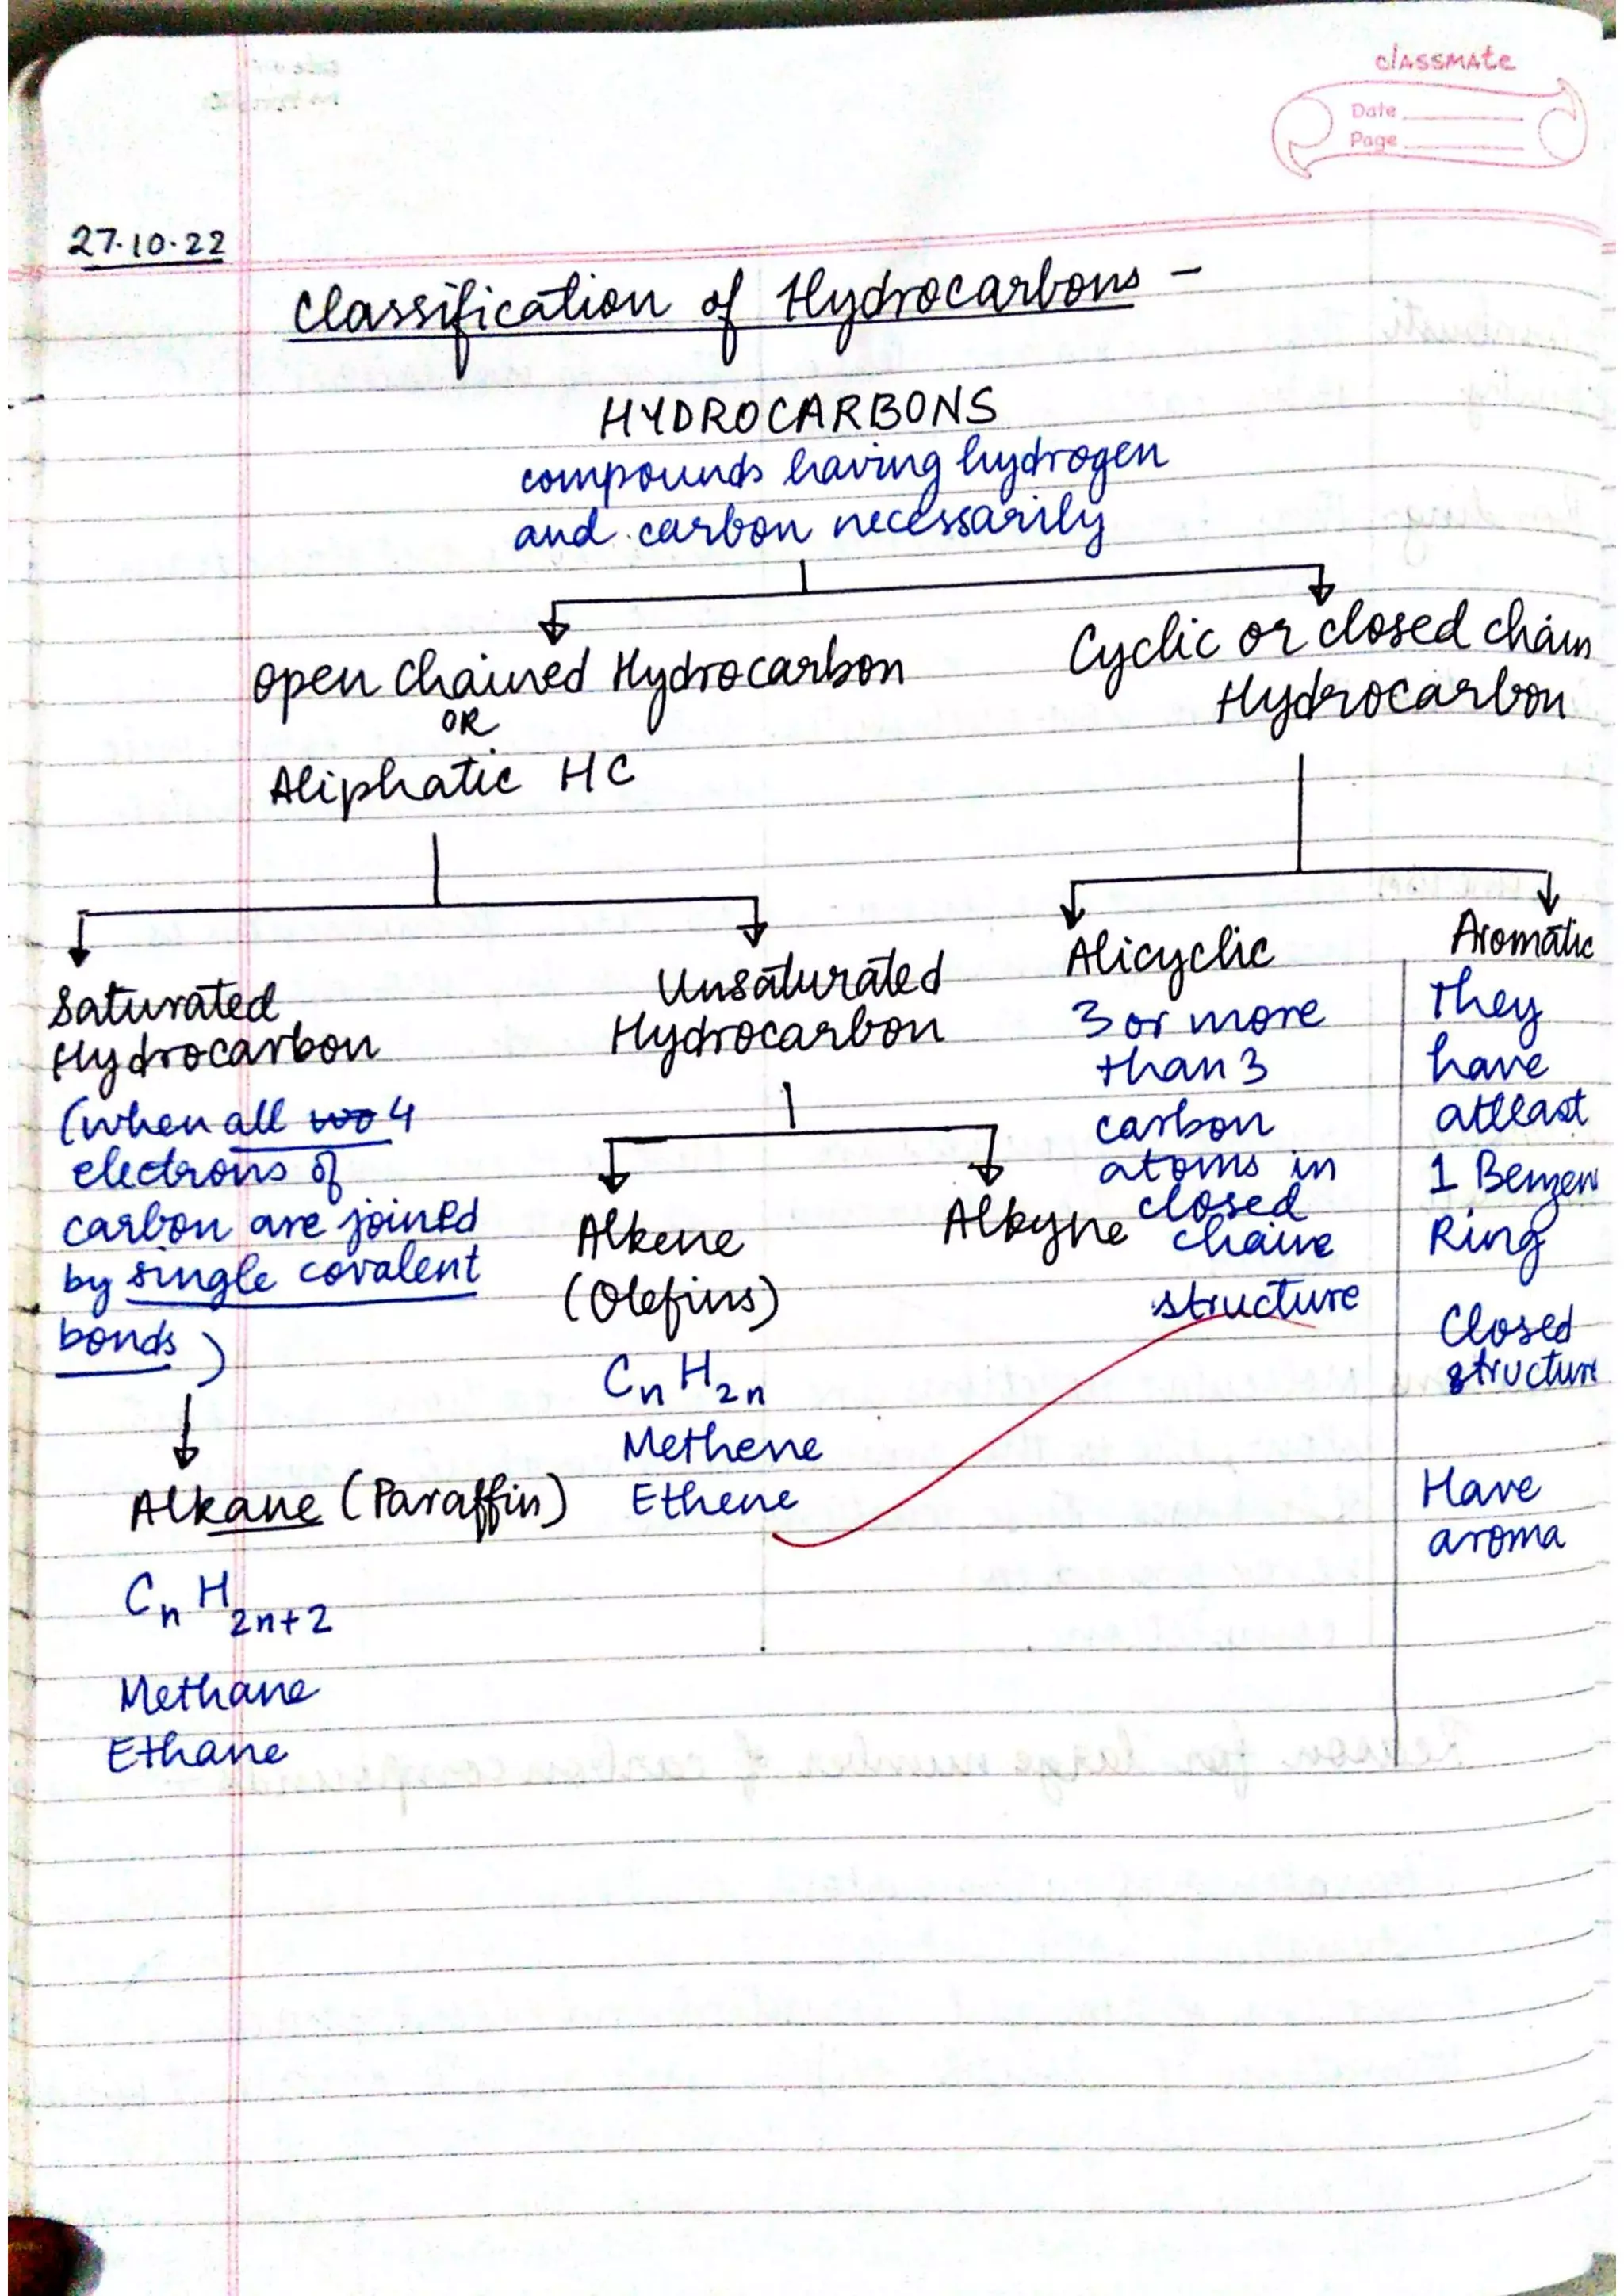 classmate
Date
Page
27.10.22
Classification of Hydrocarbons -
HYDROCARBONS
compounds having hydrogen
and carbon necessarily
Open Chained Hydrocarbon
OR
Aliphatic HC
Cyclic or closed chain
Hydrocarbon
Saturated
Hydrocarbon
(when all 4
electrons of
carbon are joined
by single covalent
bonds)
Alkane (Paraffin)
CnH2n+2
Methane
Ethane
Unsaturated
Hydrocarbon
Alkene
(Olefins)
CnH2n
Methene
Ethene
Alkyne
Alicyclic
3 or more
than 3
carbon
atoms in
closed
chaine
structure
Aromatic
They
have
atleast
1 Benzen
Ring
Closed
structure
Have
aroma